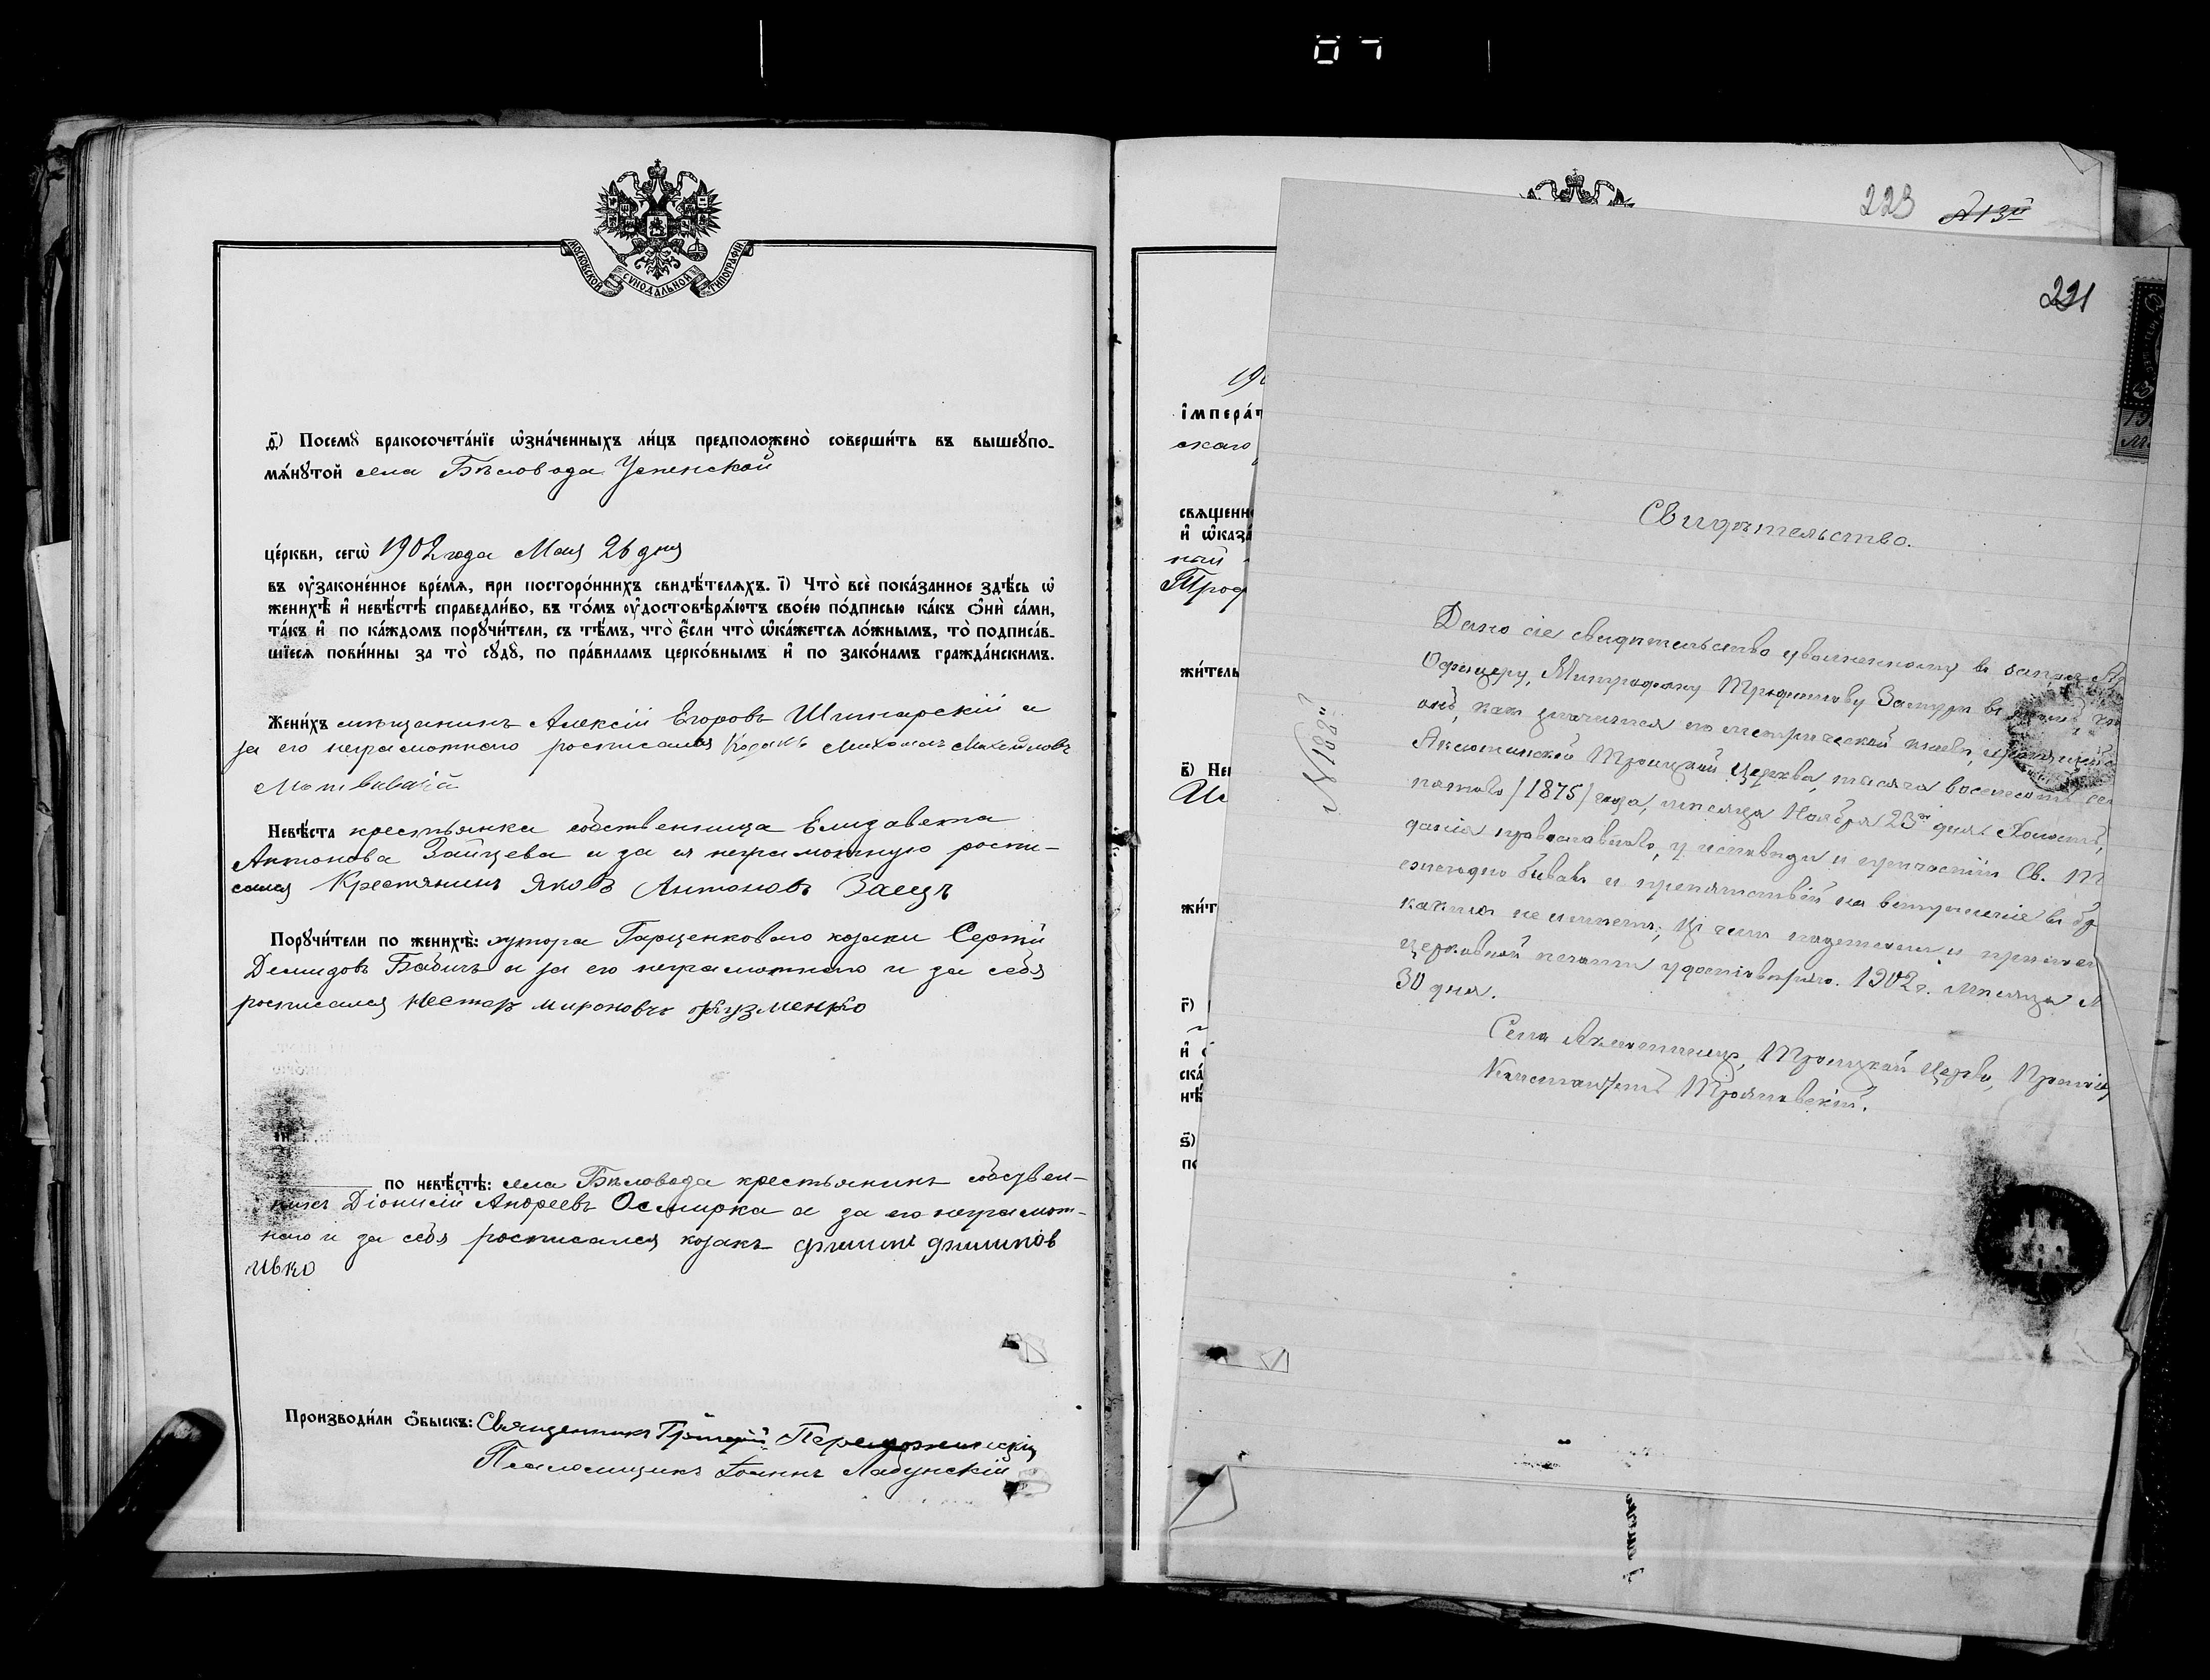 МОСКОВСКОЙ СѴНОДАЛЬНОЙ ТИПОГРАФІИ
д҃) Посемꙋ̀ бракосочета́нїе ѡ҆зна́ченныхъ ли́цъ предположено̀ соверши́ть въ вышеꙋпо-
мѧ́нꙋтой села Бѣловода Успенской
це́ркви, сегѡ̀ 1902 года Мая 26 дня
въ ᲂу҆зако́ненное вре́мѧ, при посторо́ннихъ свидѣ́телѧхъ. і҃) Что̀ всѐ пока́занное здѣ́сь ѡ҆
женихѣ̀ и҆ невѣ́стѣ справедли́во, въ то́мъ ᲂу҆достовѣрѧ́ютъ свое́ю по́дписью ка́къ ѻ҆нѝ са́ми,
та́къ и҆ по ка́ждомъ порꙋчи́тели, съ тѣ́мъ, что̀ є҆́сли что̀ ѡ҆ка́жетсѧ ло́жнымъ, то̀ подписа́в-
шїесѧ пови́нны за то̀ сꙋдꙋ̀, по пра́виламъ церко́внымъ и҆ по зако́намъ гражда́нскимъ.
Жени́хъ мѣщанинъ Алексій Егоровъ Шинарскій а
за его неграмотнаго росписался Козакъ Михаилъ Михайловъ
Невѣ́ста крестьянка собственница Елизавета
Антонова Зайцева а за ея неграмотную роспи-
сался Крестянинъ Яковъ Антоновъ Заецъ
Порꙋчи́тели по женихѣ̀: хутора Гарценковаго козаки Сергій
Демидовъ Бабичъ а за его неграмотнаго и за себя
росписался Нестаръ мироновъ Кузменко
по невѣ́стѣ: села Бѣловода крестьянинъ собствен-
никъ Діонисій Андреевъ Осмирка а за его неграмот-
наго и за себя росписался козакъ филипъ филипов
ивко
Производи́ли ѻ҆́быскъ: Священникъ Григорій
Псаломщикъ Іоаннъ Лабунскій
223
221
і҆мпера́т
скаго
свѧщенн
и҆ ѡ҆каза
ной
Троф
жи́тель
в҃) Не
жи́т
г҃)
и҆
ска́
нѣ
ѕ҃)
по
№ 182
Свидѣтельство.
Дано сіе свидѣтельство уволенному въ запасъ
Офицеру, Митрофану Трофимову въ томъ, что
онъ, какъ значится по метрической книгѣ,
Аксютинской Троицкой Церкви, тысяча восемсотъ сем
пятаго /1875/ года, мѣсяца Ноября 23го дня Холостъ,
данія православнаго, у исповѣди и причастіи Св. Т
ежегодно бывалъ и препятствій на вступленіе въ бр
какихъ не имѣетъ; въ чемъ подписомъ и прилож
церковной печати удостовѣряю. 1902 г. мѣсяца М
30 дня.
Села Аксютинецъ, Троицкой Церкви, Протоіе
Константинъ Трояновскій.